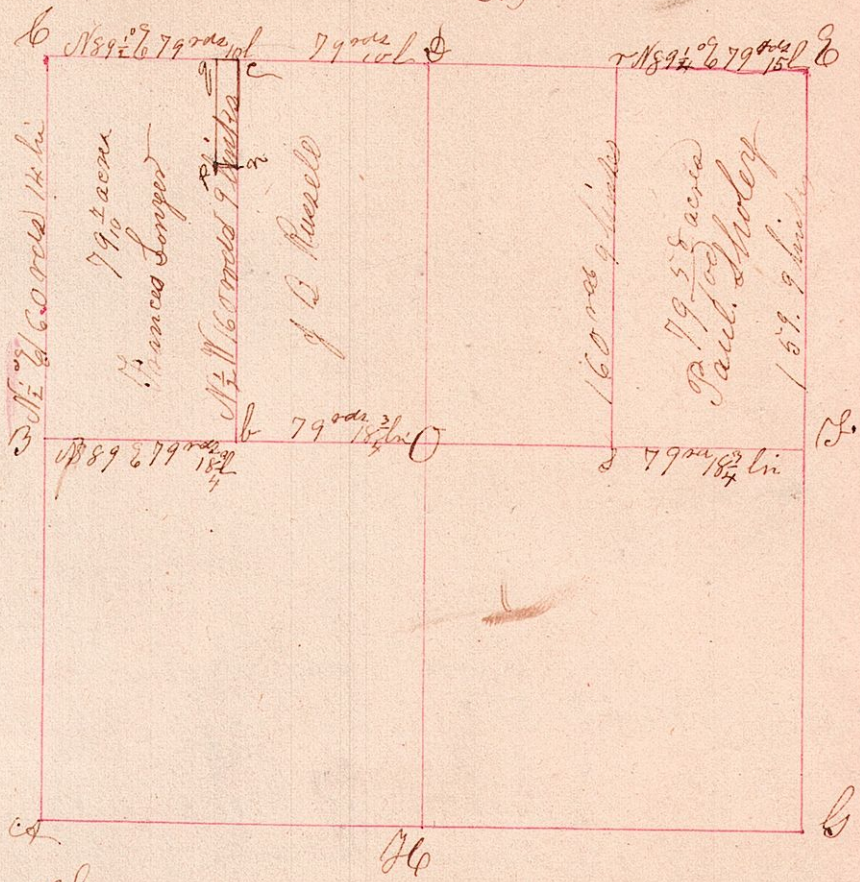 C N 89 1/2° E 79 rds 10 l 79 rds 10 l D r N 89 1/4° E 79 rds 15 l E
q c
p n
N 1/2° E 160 rds 14 li
79 4/10 acres
Frances
N 1/2 W 160 rods 9 links
J B Russell
160 rds 9 links
79 58/100 acres
Paul.
159. 9 links
B N 89 E 79 rds 18 3/4 l b 79 rds 18 3/4 li O s 79 rds 18 3/4 li F.
A H G